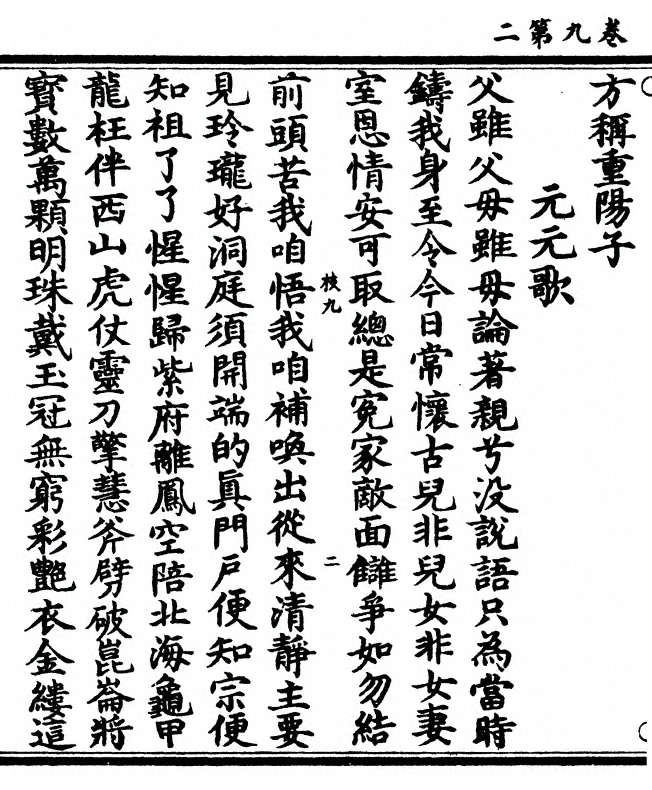 卷九第二
方稱重陽子
元元歌
父雖父毋雖毋論著親兮没說語只為當時
鑄我身至令今日常懷古兒非兒女非女妻
室恩情安可取總是寃家敵面讎爭如勿結
枝九
二
前頭苦我咱悟我咱補喚出從來清靜主要
見玲瓏好洞庭須開端的真門戸便知宗便
知祖了了惺惺歸紫府離鳳空陪北海龜甲
龍枉伴西山虎仗靈刀擎慧斧劈破崑崙將
寳數萬顆明珠戴玉冠無窮彩艶衣金縷這